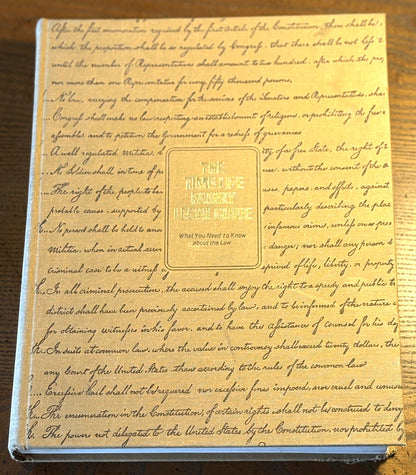 After the first enumeration required by the first Article of the Constitution, there shall be
which the proportion shall be so regulated by Congress, that there shall be not less t
until the number of Representatives shall amount to two hundred, after which the pro
nor more than one Representative for every fifty thousand persons,
No law, varying the compensation for the services of the Senators and Representatives, sha
Congress shall make no law respecting an establishment of religion, or prohibiting the free e
assemble, and to petition the Government for a redress of grievances
A well regulated Militia, b
ty of a free State, the right of t
No Soldier shall in time of p
, without the consent of the
The right of the people to be
papers, and effects, against
probable causes, supported by
particularly describing the place
No person shall be held to ans
infamous crime, unless on a pres
Militia, when in actual serv
danger; nor shall any person b
criminal case to be a witness
eprived of life, liberty, or property
THE
TIME-LIFE
FAMILY
LEGAL GUIDE
What You Need to Know
about the Law
In all criminal prosecution, the accused shall enjoy the right to a speedy and public t
district shall have been previously ascertained by law, and to be informed of the nature a
for obtaining witnesses in his favor, and to have the Assistance of Counsel for his de
In suits at common law, where the value in controversy shall exceed twenty dollars, the
any Court of the United States, than according to the rules of the common law
Excessive bail shall not be required nor excessive fines imposed, nor cruel and unusua
The enumeration in the Constitution, of certain rights, shall not be construed to deny
The powers not delegated to the United States by the Constitution, nor prohibited by